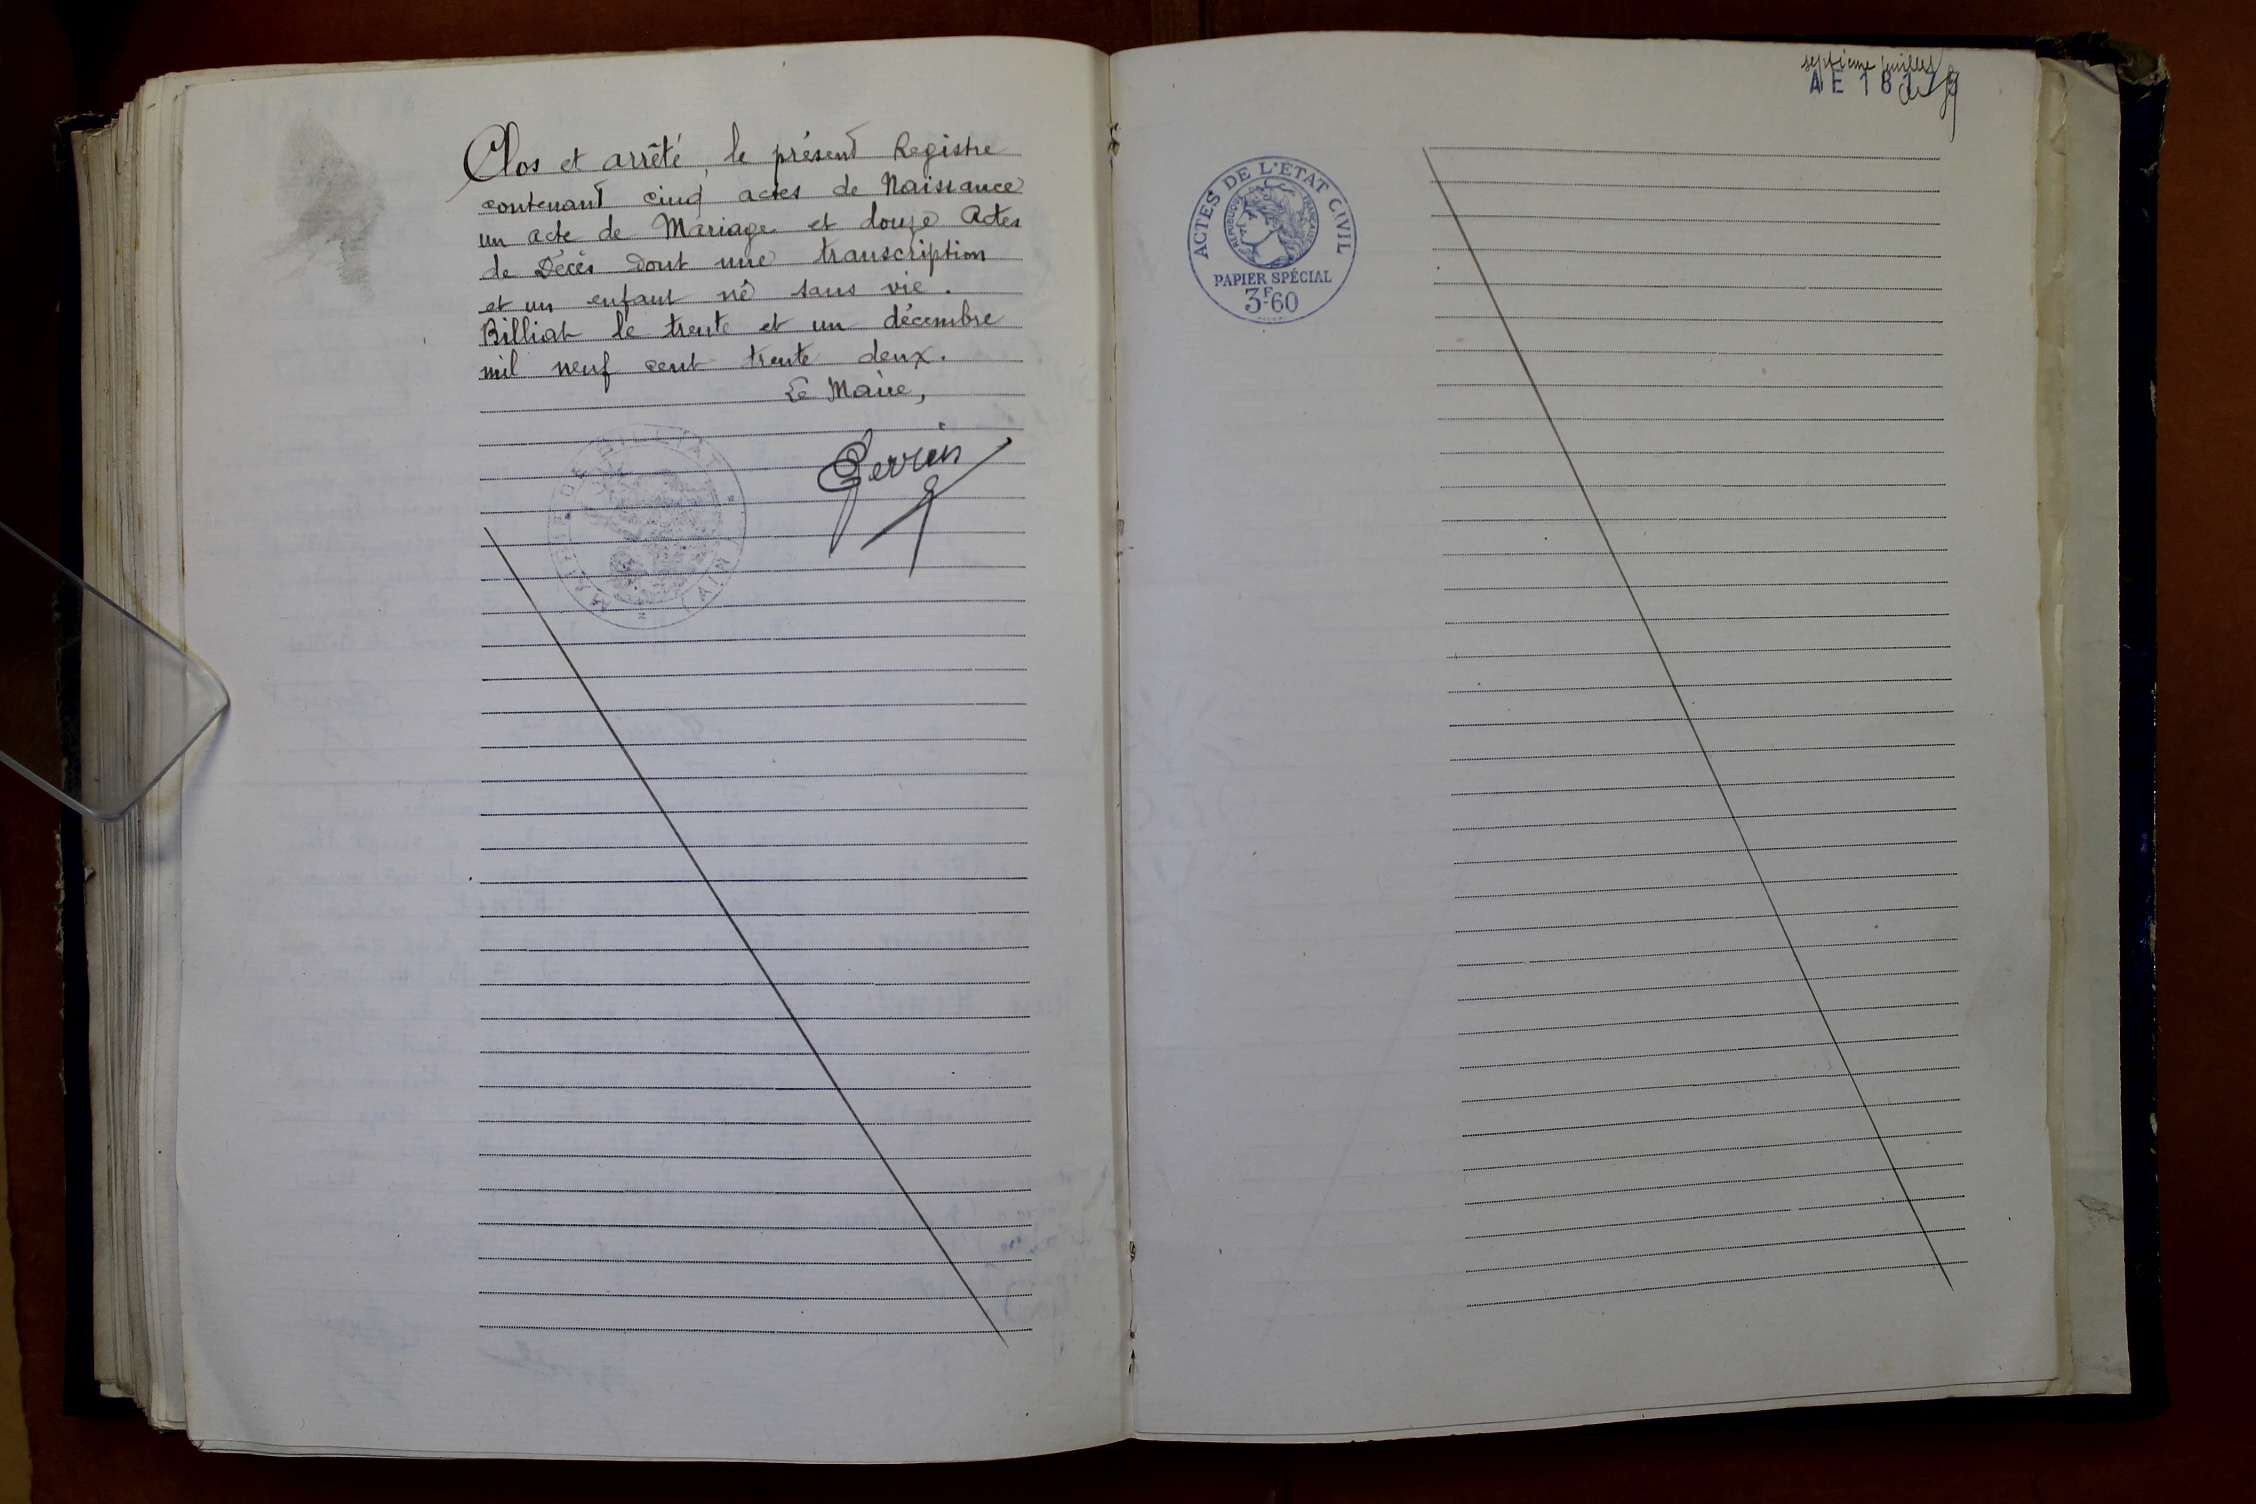 Clos et arrêté, le présent Registre
contenant cinq actes de Naissance
un acte de Mariage et douze Actes
de Décès dont une transcription
et un enfant né sans vie.
Billiat le trente et un décembre
mil neuf cent trente deux.
Le Maire,
MAIRIE DE BILLIAT
(AIN)
septième feuillet
AE 18
ACTES DE L'ÉTAT CIVIL
RÉPUBLIQUE FRANÇAISE
PAPIER SPÉCIAL
3F60